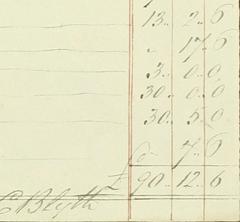 13 .. 2 - 6
" 17 - 6
3 .. 0 .. 0
30 .. 0 .. 0
30 .. 5 .. 0
7 - 6
£ 90 .. 12 .. 6
C Blyth